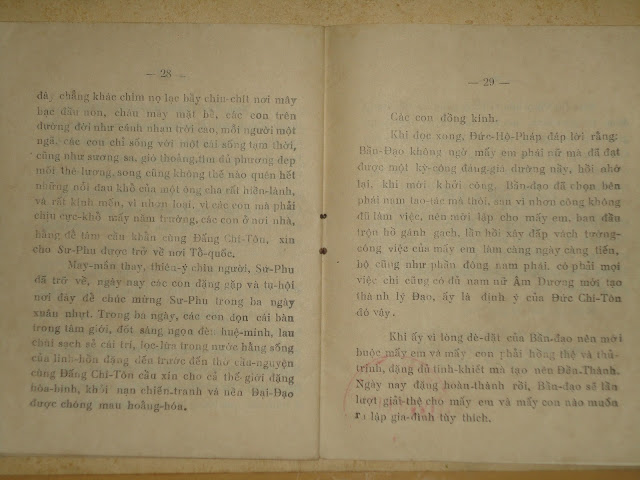 — 28 —
đây chẳng khác chim nọ lạc bầy chiu-chít nơi mây
bạc đầu non, cháu mày mặt bể, các con trên
đường đời như cánh nhạn trời cao, mỗi người một
ngã, các con chỉ sống với một cái sống tạm thời,
cũng như sương sa, gió thoảng, tìm đủ phương đẹp
mối thê-lương, song cũng không thế nào quên hết
những nỗi đau khổ của một ông cha rất hiền-lành,
và rất kính mến, vì nhơn loại, vì các con mà phải
chịu cực-khổ mấy năm trường, các con ở nơi nhà,
hằng đê tâm cầu khẩn cùng Đấng Chí-Tôn, xin
cho Sư-Phụ được trở về nơi Tổ-quốc.
May-mắn thay, thiên-ý chìu người, Sư-Phụ
đã trở về, ngày nay các con đặng gặp và tụ-hội
nơi đây để chúc mừng Sư-Phụ trong ba ngày
xuân nhựt. Trong ba ngày, các con dọn cái bàn
trong tâm giới, đốt sáng ngọn đèn huệ-minh, lau
chùi sạch sẽ cái trí, lọc-lừa trong nước hằng sống
của linh-hồn đặng đến trước đền thờ cầu-nguyện
cùng Đấng Chí-Tôn cầu xin cho cả thế-giới đặng
hòa-bình, khỏi nạn chiến-tranh và nền Đại-Đạo
được chóng mau hoằng-hóa.
— 29 —
Các con đồng kính.
Khi đọc xong, Đức-Hộ-Pháp đáp lời rằng:
Bần-Đạo không ngờ mấy em phái nữ mà đã đạt
được một kỳ-công đáng-giá dường nầy, hồi nhớ
lại, khi mới khởi công, Bần-đạo đã chọn bên
phái nam tạo-tác mà thôi, sau vì nhơn công không
đủ làm việc, nên mới lập cho mấy em, ban đầu
trộn hồ gánh gạch, lần hồi xây đắp vách tường-
công việc của mấy em làm càng ngày càng tiến,
hộ cũng như phần đông nam phái, có phải mọi
việc chi cũng có đủ nam nữ Âm Dương mới tạo
thành lý Đạo, ấy là định ý của Đức Chí-Tôn
đó vậy.
Khi ấy vì lòng dè-dặt của Bần-đạo nên mới
buộc mấy em và mấy con phải hồng thệ và thủ-
trinh, đặng đủ tinh-khiết mà tạo nên Đền-Thánh.
Ngày nay đặng hoàn-thành rồi, Bần-đạo sẽ lần
lượt giải-thệ cho mấy em và mấy con nào muốn
ra lập gia-đình tùy thích.